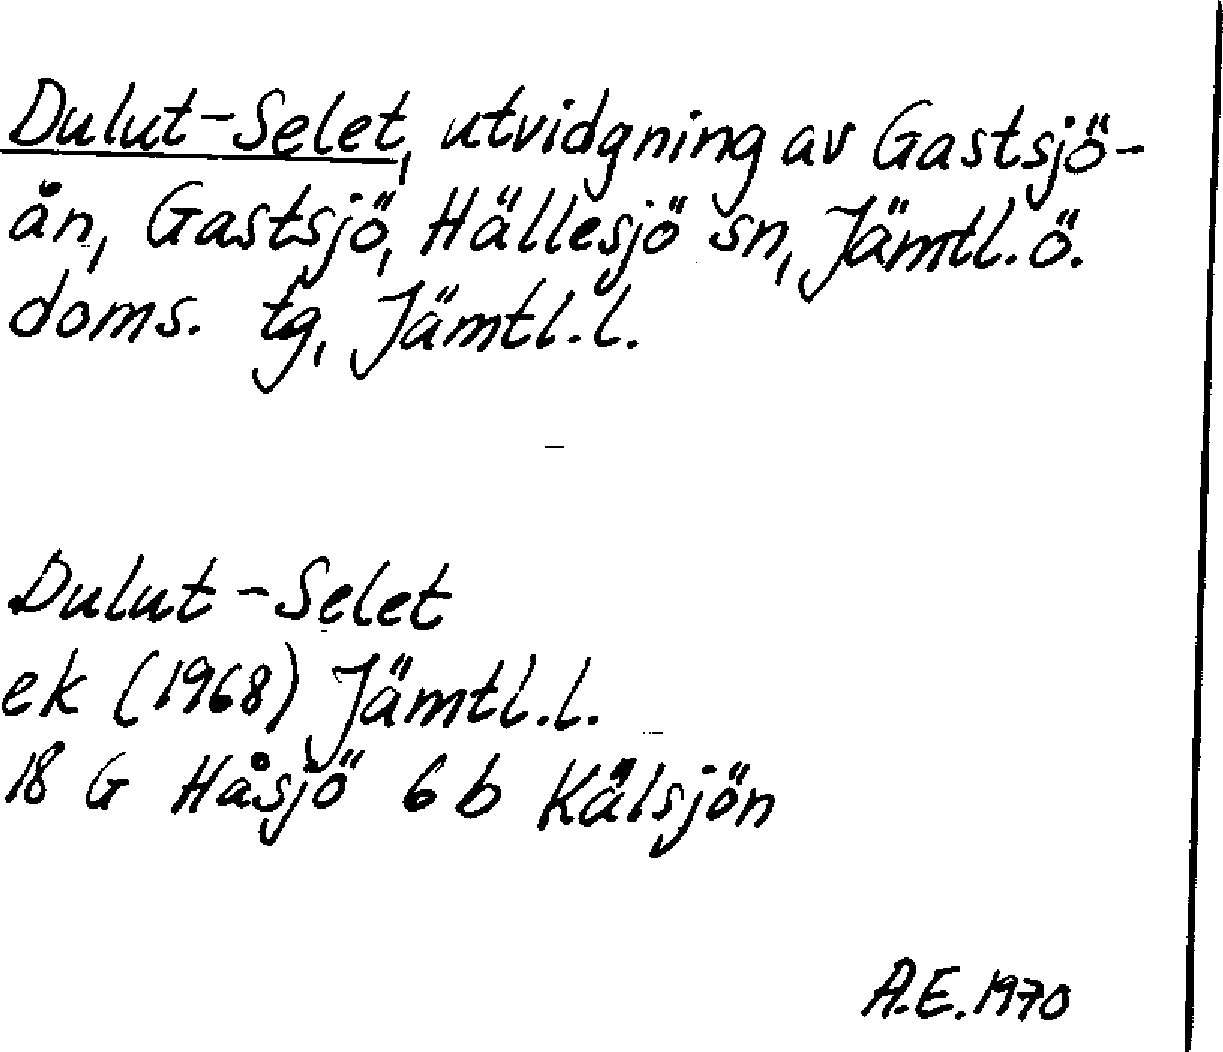 Dulut-Selet, utvidgning av Gastsjö-
ån, Gastsjö, Hällesjö sn, Jämtl. ö.
doms. tg, Jämtl. l.
Dulut-Selet
ek (1968) Jämtl. l.
18 G Håsjö 6 b Kälsjön
A.E. 1970